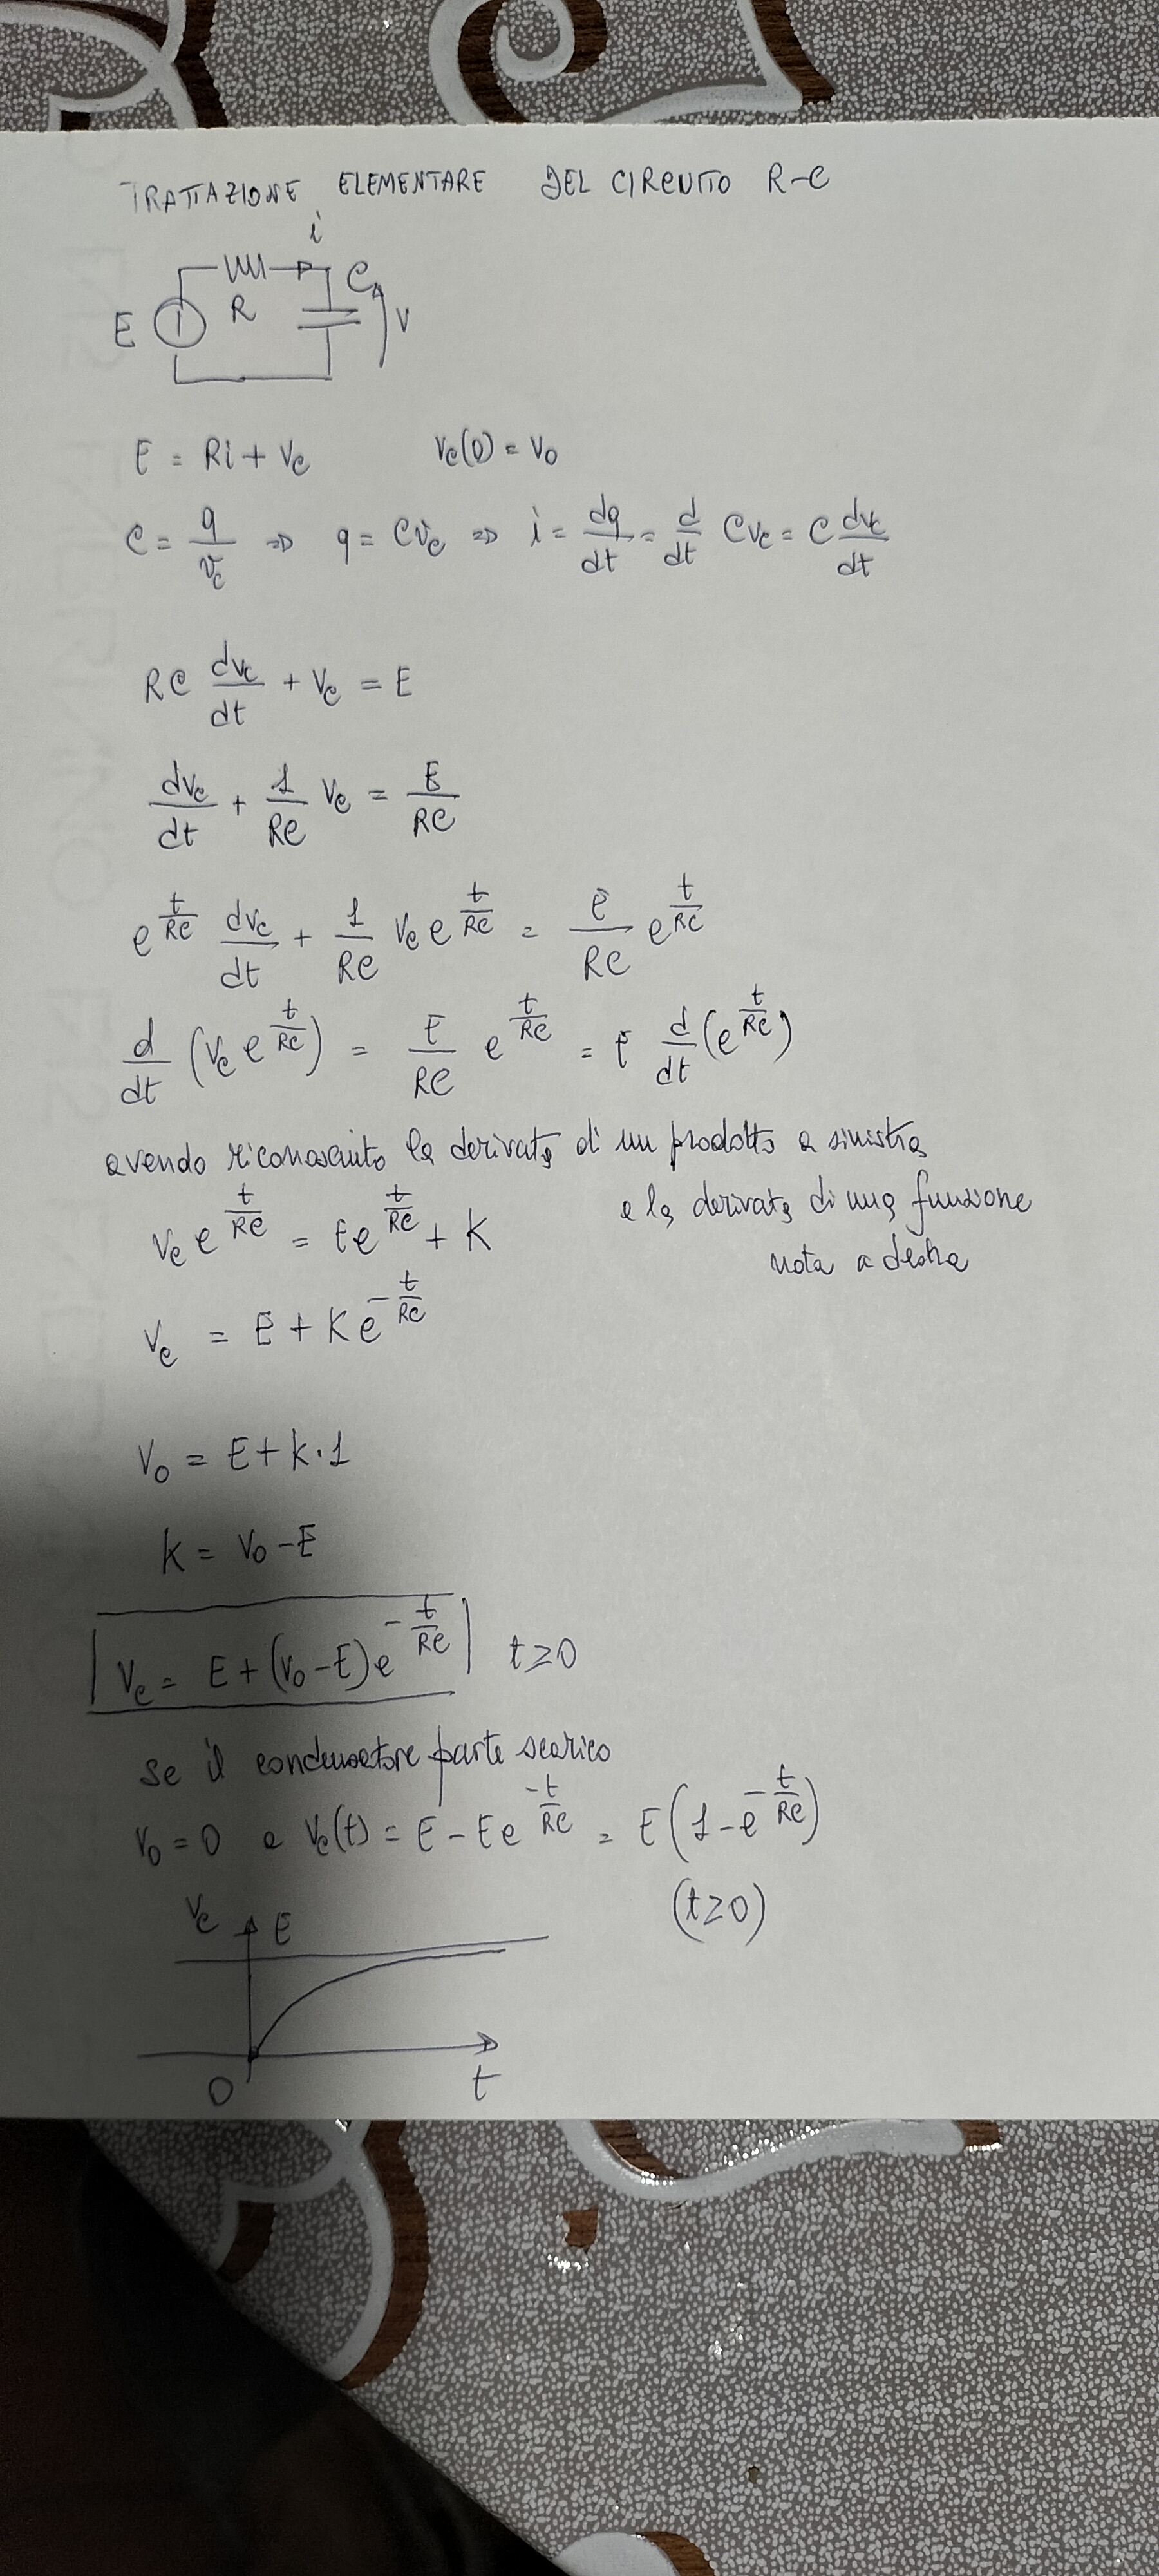 TRATTAZIONE ELEMENTARE DEL CIRCUITO R-C
i
E R C V
E = Ri + Vc    Vc(0) = V0
C = q/vc ⇒ q = CVc ⇒ i = dq/dt = d/dt CVc = C dvc/dt
RC dvc/dt + Vc = E
dvc/dt + 1/RC Vc = E/RC
e^(t/RC) dvc/dt + 1/RC Vc e^(t/RC) = E/RC e^(t/RC)
d/dt (Vc e^(t/RC)) = E/RC e^(t/RC) = E d/dt (e^(t/RC))
avendo riconosciuto la derivata di un prodotto a sinistra
e la derivata di una funzione
nota a destra
Vc e^(t/RC) = Ee^(t/RC) + K
Vc = E + Ke^(-t/RC)
V0 = E + K·1
K = V0 - E
Vc = E + (V0 - E)e^(-t/RC)    t ≥ 0
se il condensatore parte scarico
V0 = 0 e Vc(t) = E - Ee^(-t/RC) = E(1 - e^(-t/RC))
(t ≥ 0)
Vc E
0 t